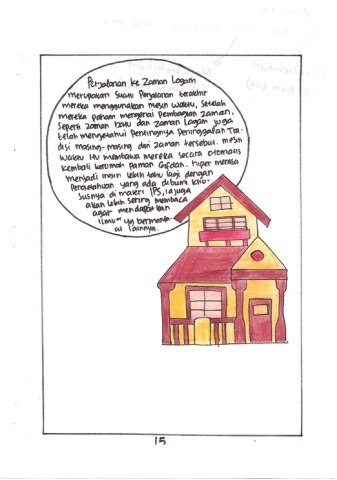 Perjalanan ke Zaman Logam
merupakan suatu Perjalanan terakhir
mereka menggunakan mesin waktu, Setelah
mereka paham mengenai Pembagian Zaman,
Seperti Zaman batu dan Zaman Logam juga
telah mengetahui Pentingnya Peninggalan Tra-
disi masing-masing dari zaman tersebut. mesin
waktu itu membawa mereka secara otomatis
kembali kerumah Paman
merasa
menjadi ingin lebih tahu lagi dengan
Pengetahuan yang ada dibumi khu-
susnya di materi IPS, ia juga
akan lebih sering membaca
agar mendapatkan
ilmu" yg bermanfa-
at lainnya.
15